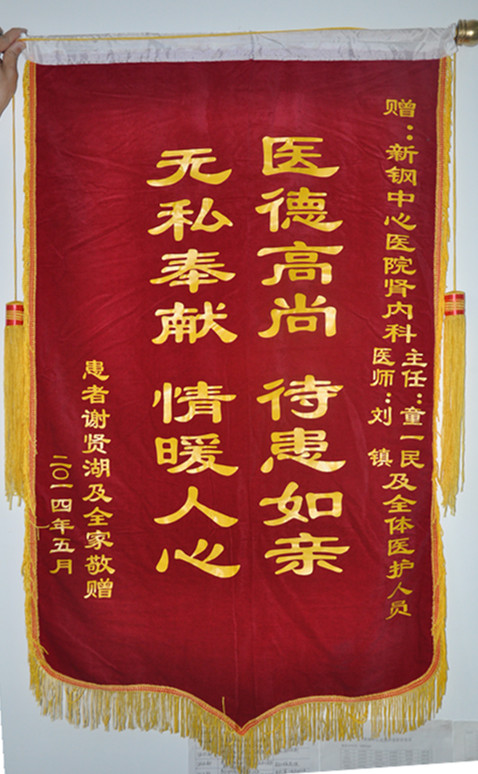 赠：新钢中心医院肾内科
主任：童一民
医师：刘 镇
及全体医护人员
医德高尚 待患如亲
无私奉献 情暖人心
患者谢贤湖及全家敬赠
二〇一四年五月